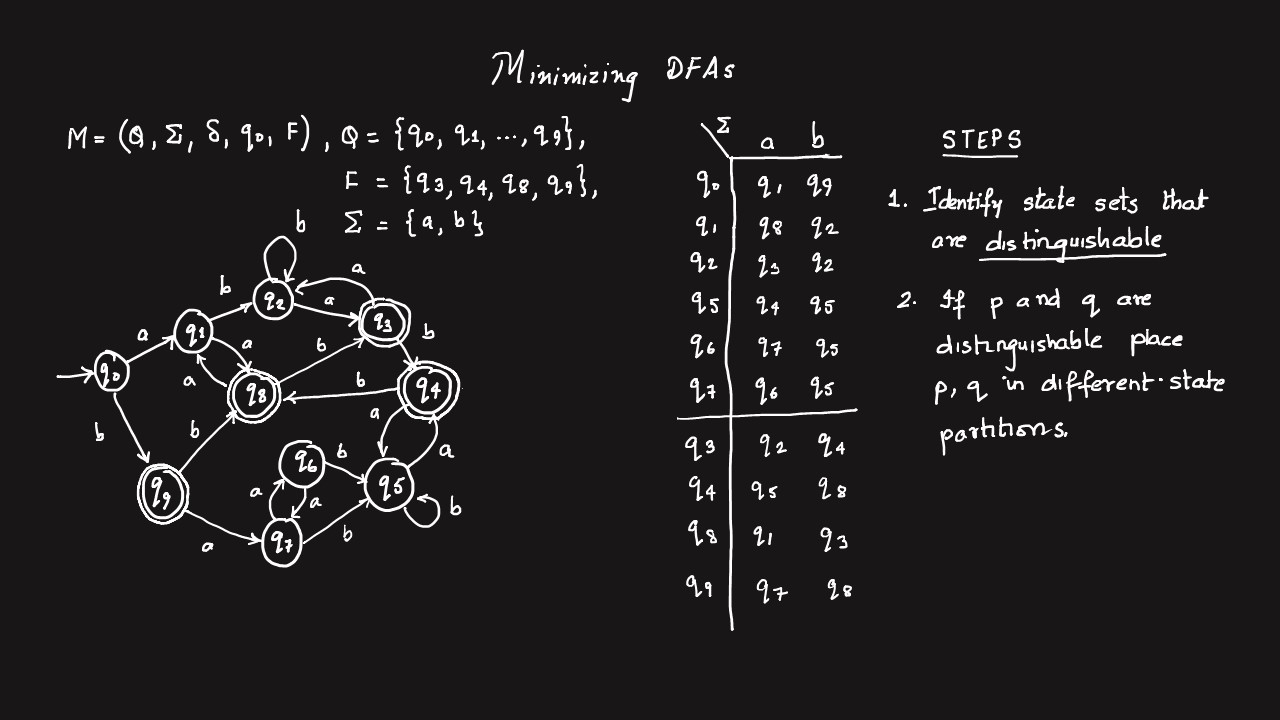 Minimizing DFAs
M = (Q, Σ, δ, q0, F), Q = {q0, q1, ..., q9},
F = {q3, q4, q8, q9},
Σ = {a, b}
b
a
b
q2
a
q3
a
q1
a
b
b
q0
a
q8
b
q4
b
b
a
a
q9
q6
b
q5
a
a
b
a
q7
b
Σ a b
q0 q1 q9
q1 q8 q2
q2 q3 q2
q5 q4 q5
q6 q7 q5
q7 q6 q5
q3 q2 q4
q4 q5 q8
q8 q1 q3
q9 q7 q8
STEPS
1. Identify state sets that
are distinguishable
2. If p and q are
distinguishable place
p, q in different state
partitions.